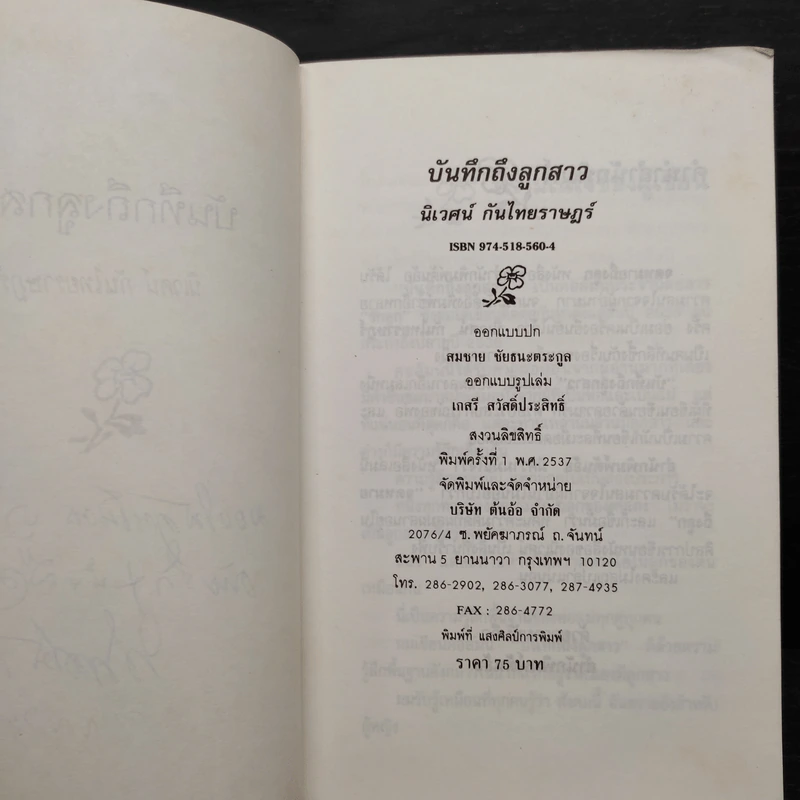 บันทึกถึงลูกสาว
นิเวศน์ กันไทยราษฎร์
ISBN 974-518-560-4
ออกแบบปก
สมชาย ชัยธนะตระกูล
ออกแบบรูปเล่ม
เกสรี สวัสดิ์ประสิทธิ์
สงวนลิขสิทธิ์
พิมพ์ครั้งที่ 1 พ.ศ. 2537
จัดพิมพ์และจัดจำหน่าย
บริษัท ต้นอ้อ จำกัด
2076/4 ซ.พยัคฆาภรณ์ ถ.จันทน์
สะพาน 5 ยานนาวา กรุงเทพฯ 10120
โทร. 286-2902, 286-3077, 287-4935
FAX : 286-4772
พิมพ์ที่ แสงศิลป์การพิมพ์
ราคา 75 บาท